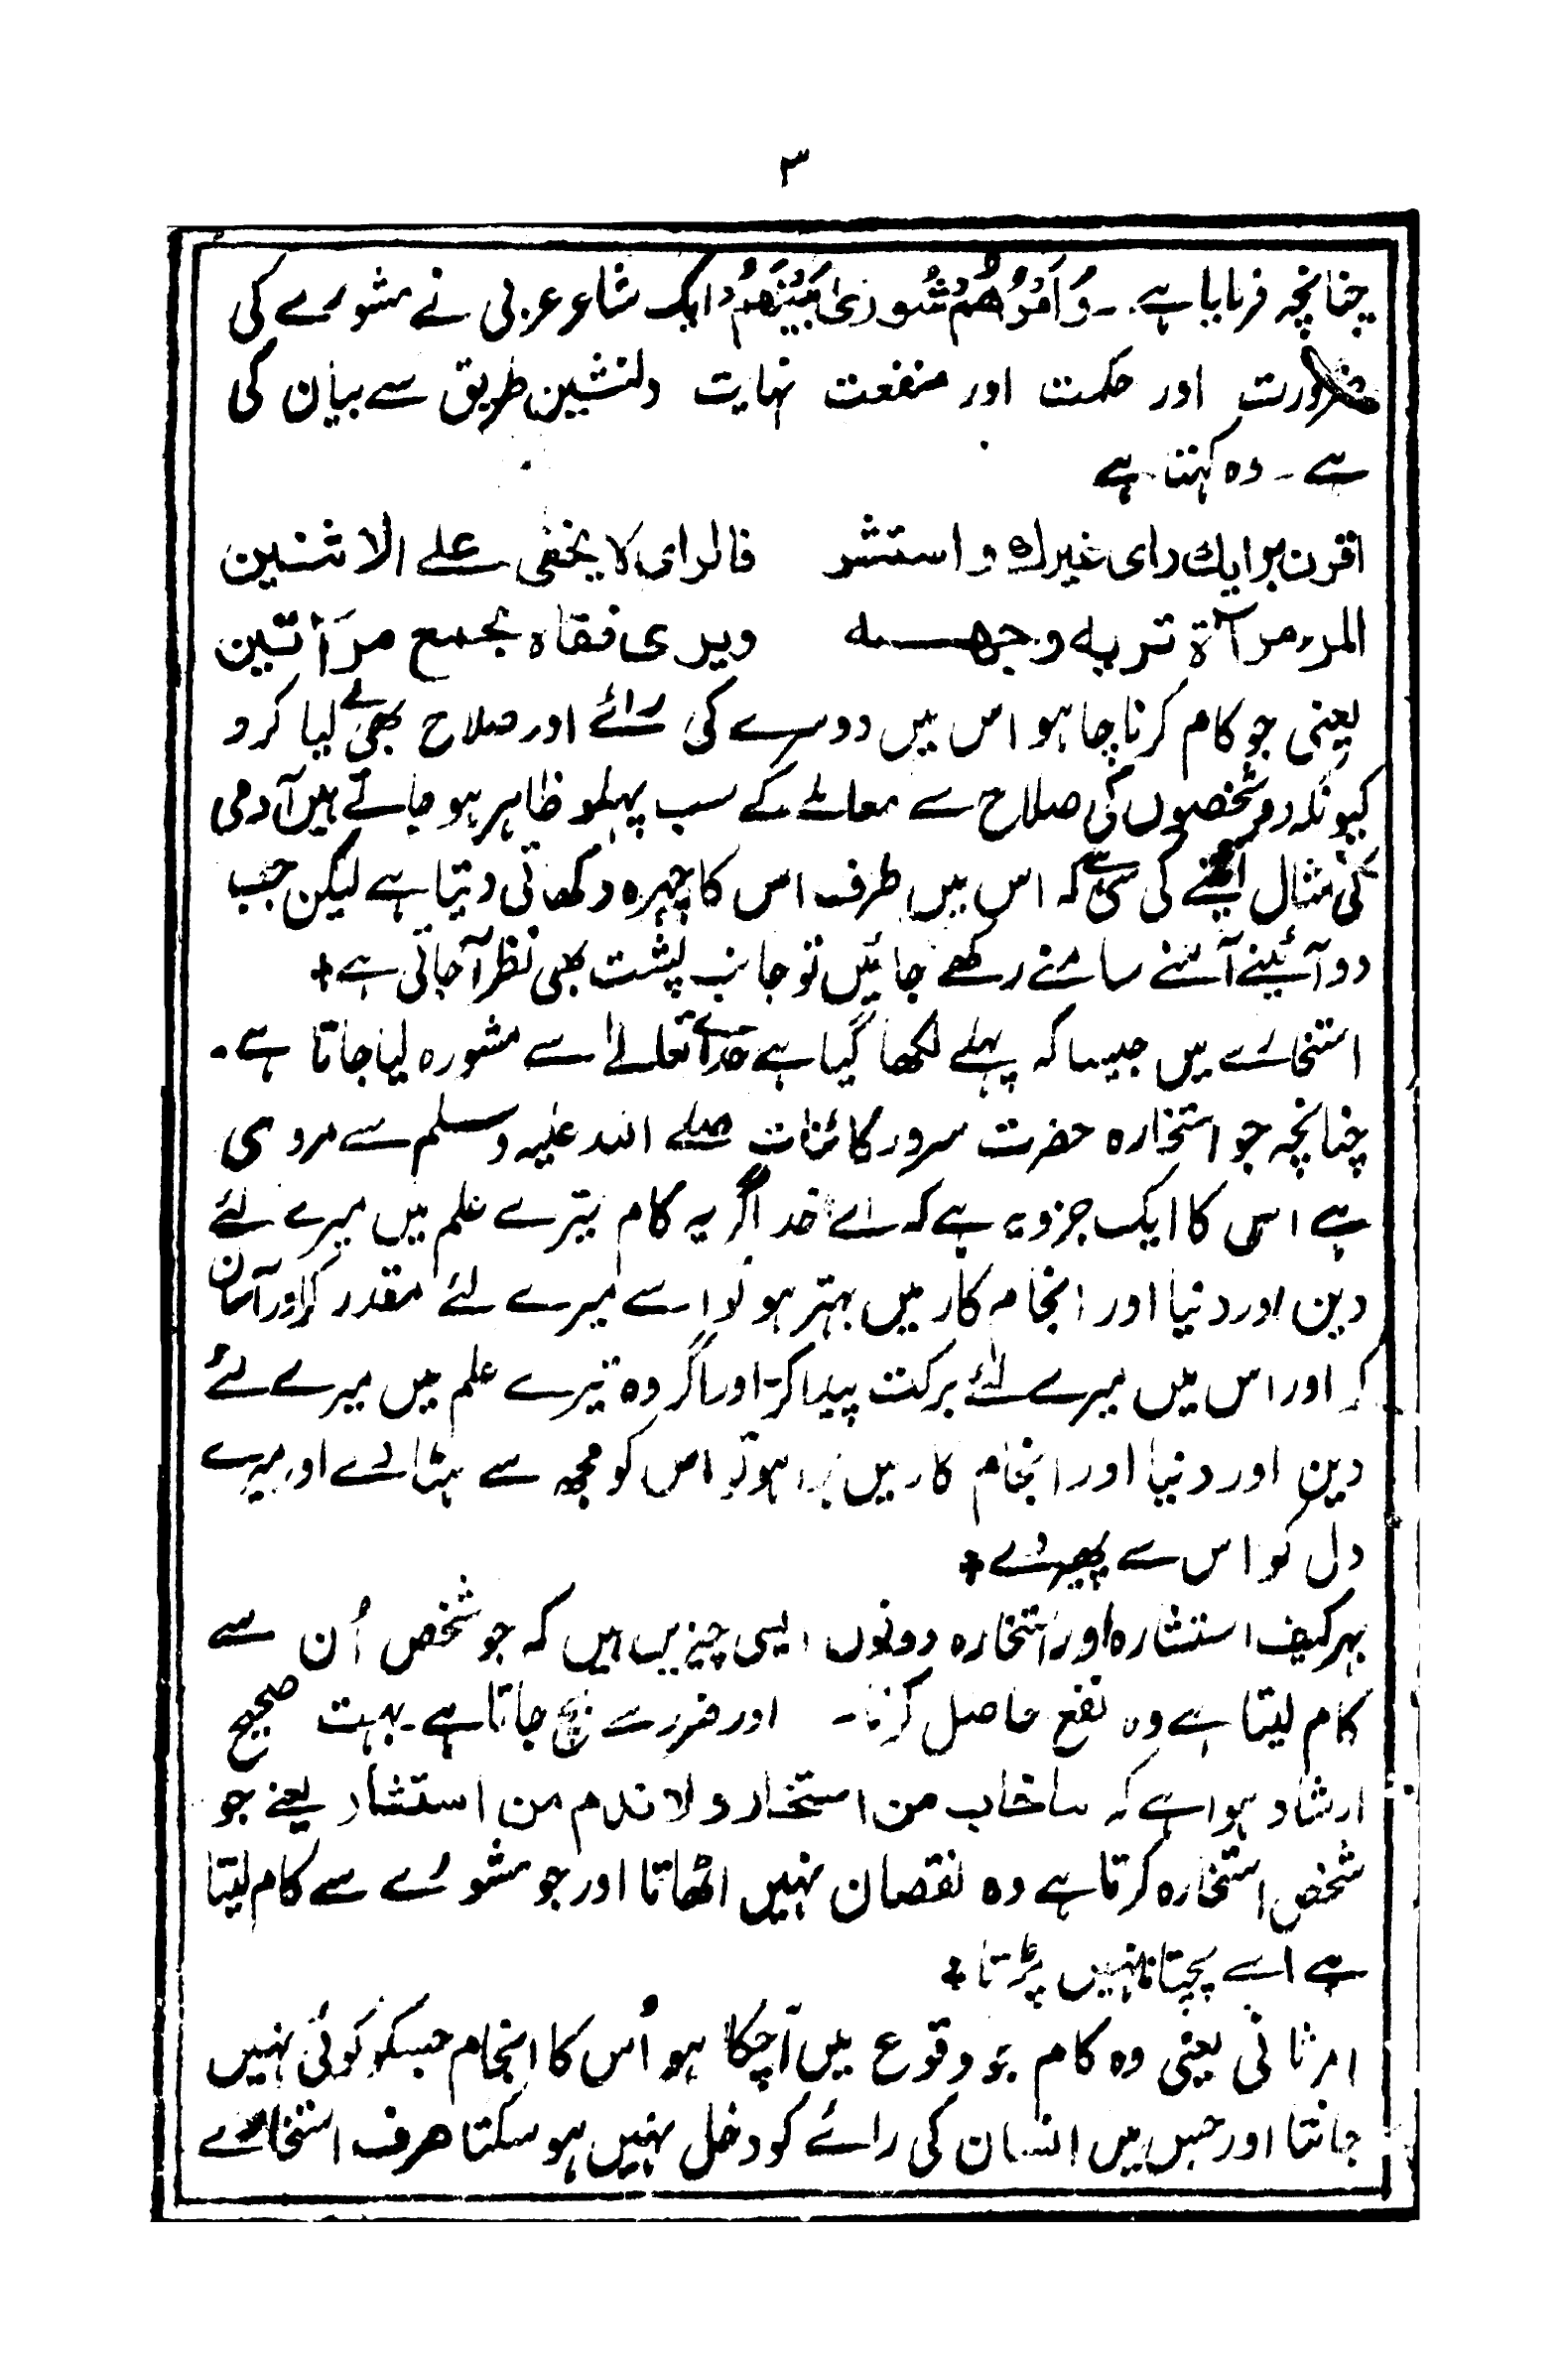 ۳
چنانچہ فرمایا ہے۔ وَاَمْرُهُمْ شُورٰى بَيْنَهُمْ ایک شاعر عربی نے مشورے کی
ضرورت اور حکمت اور منفعت نہایت دلنشین طریق سے بیان کی
ہے۔ وہ کہتا ہے
اقرن برایك رای غیرك واستشر فالرای لا یخفی علے الاثنین
المرء مرآۃ تریه وجهه ویری قفاه بجمع مرأتین
یعنی جو کام کرنا چاہو اس میں دوسرے کی رائے اور صلاح بھی لے لیا کرو
کیونکہ دو شخصوں کی صلاح سے معاملے کے سب پہلو ظاہر ہو جاتے ہیں آدمی
کی مثال آئینے کی سی ہے کہ اس میں طرف اس کا چہرہ دکھائی دیتا ہے لیکن جب
دو آئینے آمنے سامنے رکھے جائیں تو جانب پشت بھی نظر آجاتی ہے+
استخارے میں جیسا کہ پہلے لکھا گیا ہے خدائے تعالےٰ سے مشورہ لیا جاتا ہے۔
چنانچہ جو استخارہ حضرت سرور کائنات صلے اللہ علیہ وسلم سے مروی
ہے اسی کا ایک جزو یہ ہے کہ اے خدا اگر یہ کام تیرے علم میں میرے لئے
دین اور دنیا اور انجام کار میں بہتر ہو تو اسے میرے لئے مقدر کر اور آسان
کر اور اس میں میرے لئے برکت پیدا کر۔ اور اگر وہ تیرے علم میں میرے لئے
دین اور دنیا اور انجام کار میں برا ہو تو اس کو مجھ سے ہٹا دے اور میرے
دل کو اس سے پھیر دے+
بہرکیف استشارہ اور استخارہ دونوں ایسی چیزیں ہیں کہ جو شخص اُن سے
کام لیتا ہے وہ نفع حاصل کرتا۔ اور ضرر سے بچ جاتا ہے۔ بہت صحیح
ارشاد ہوا ہے کہ ماخاب من استخار ولا ندم من استشار یعنے جو
شخص استخارہ کرتا ہے وہ نقصان نہیں اٹھاتا اور جو مشورے سے کام لیتا
ہے اسے پچتانا نہیں پڑتا+
امر ثانی یعنی وہ کام جو وقوع میں آچکا ہو اُس کا انجام جسکو کوئی نہیں
جانتا اور جس میں انسان کی رائے کو دخل نہیں ہو سکتا صرف استخارے